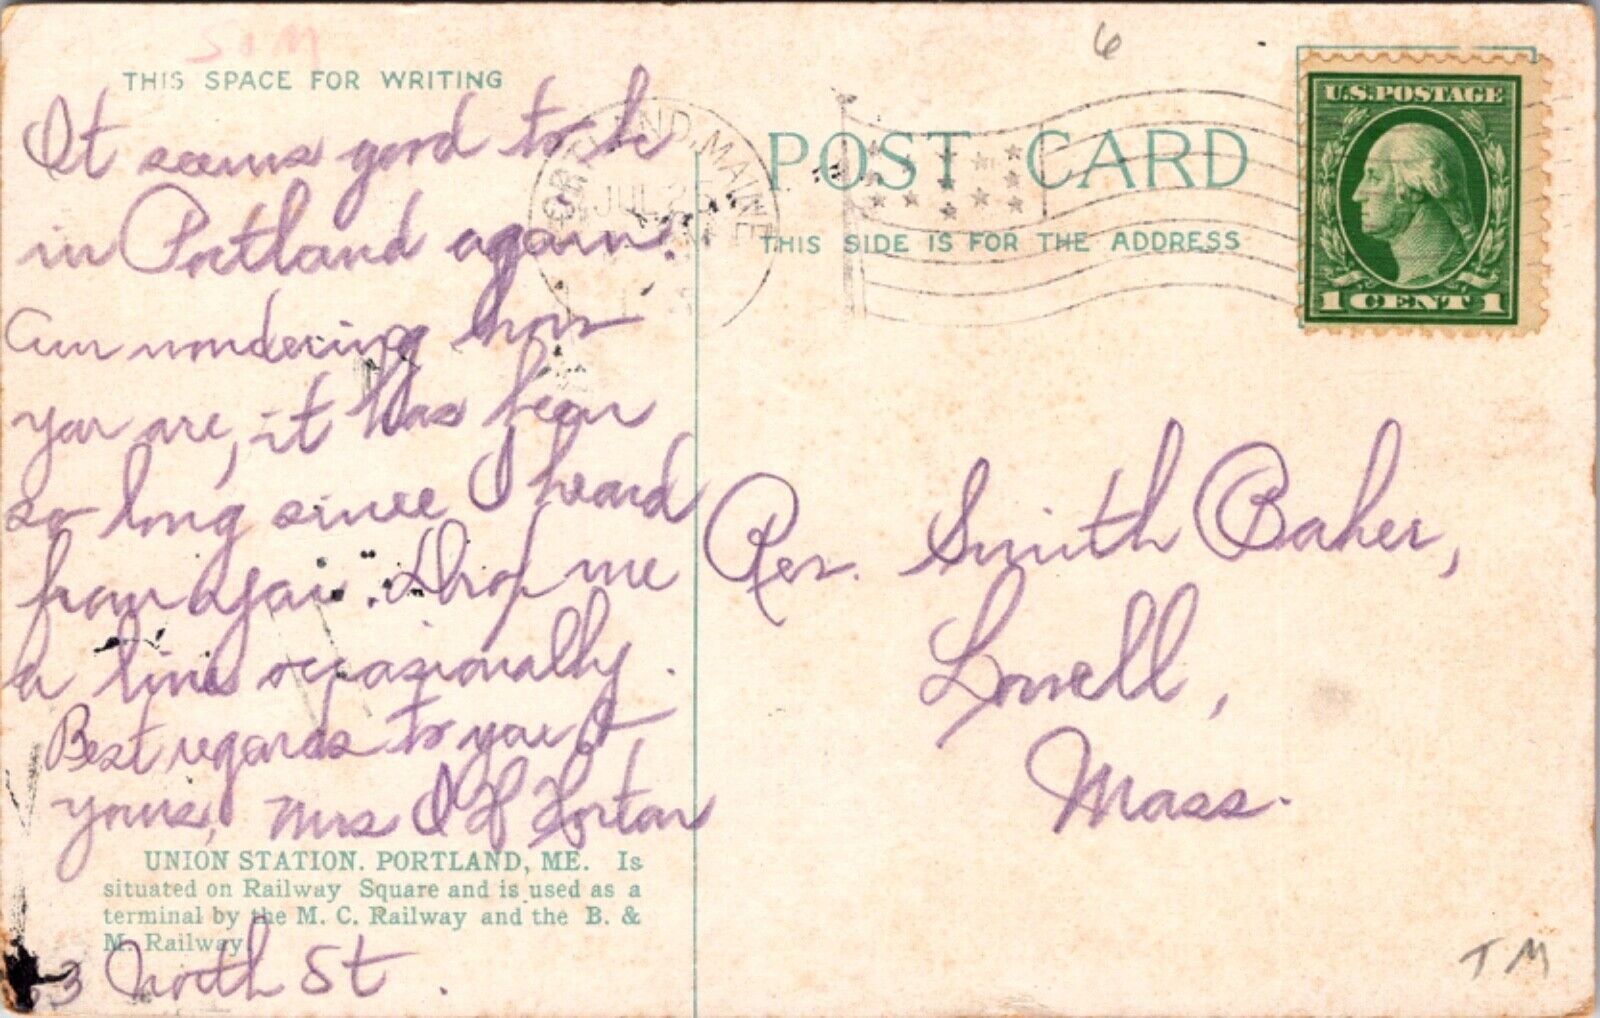 S I M
6
THIS SPACE FOR WRITING
It seems good to be
in Portland again.
Am wondering how
you are, it has been
so long since I heard
from you. Drop me
a line occasionally.
Best regards to you
yours, Mrs Horton
UNION STATION. PORTLAND, ME. Is
situated on Railway Square and is used as a
terminal by the M. C. Railway and the B. &
M. Railway.
3 North St.
PORTLAND, MAINE
JUL 25
POST CARD
THIS SIDE IS FOR THE ADDRESS
U.S. POSTAGE
1 CENT 1
Rev. Smith Baker,
Lowell,
Mass.
T M